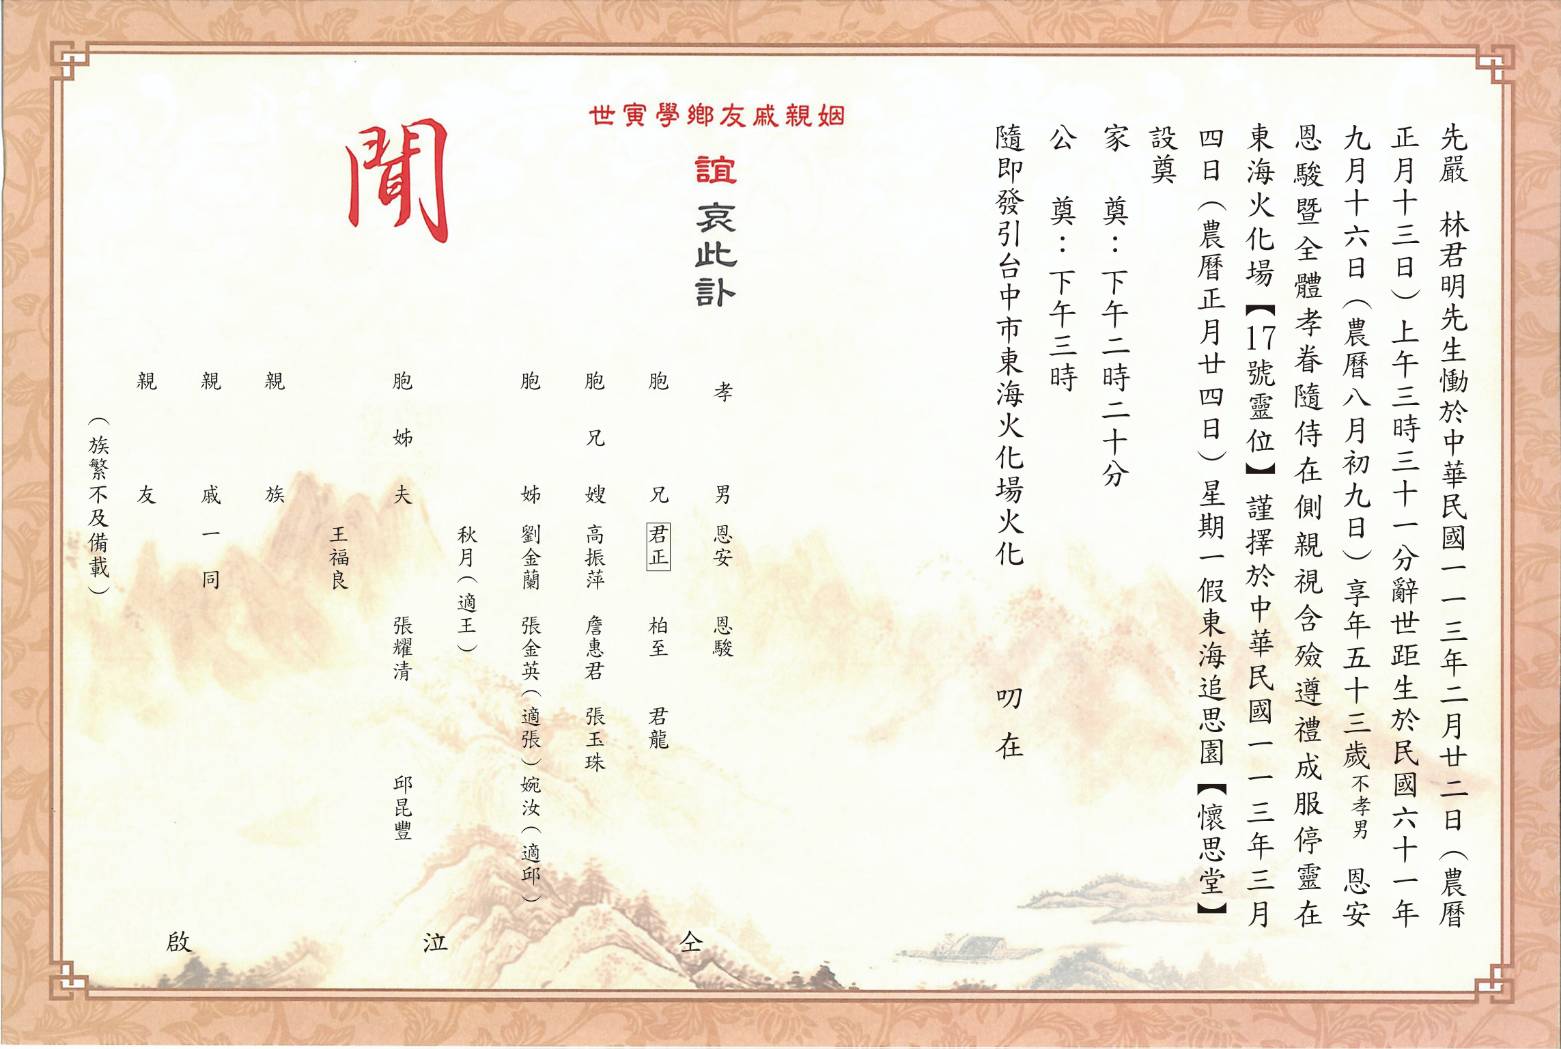 先嚴　林君明先生慟於中華民國一一三年二月廿二日（農曆
正月十三日）上午三時三十一分辭世距生於民國六十一年
九月十六日（農曆八月初九日）享年五十三歲不孝男　恩安
恩駿暨全體孝眷隨侍在側親視含殮遵禮成服停靈在
東海火化場【17號靈位】謹擇於中華民國一一三年三月
四日（農曆正月廿四日）星期一假東海追思園【懷思堂】
設奠
家　奠：下午二時二十分
公　奠：下午三時
隨即發引台中市東海火化場火化
叨在
姻親戚友鄉學寅世
誼哀此訃
聞
孝男 恩安 恩駿
胞兄 君正 柏至 君龍
胞兄嫂 高振萍 詹惠君 張玉珠
胞姊 劉金蘭 張金英（適張）婉汝（適邱）
秋月（適王）
胞姊夫 張耀清 邱昆豐
王福良
親族
親戚一同
親友
（族繁不及備載）
仝 泣 啟